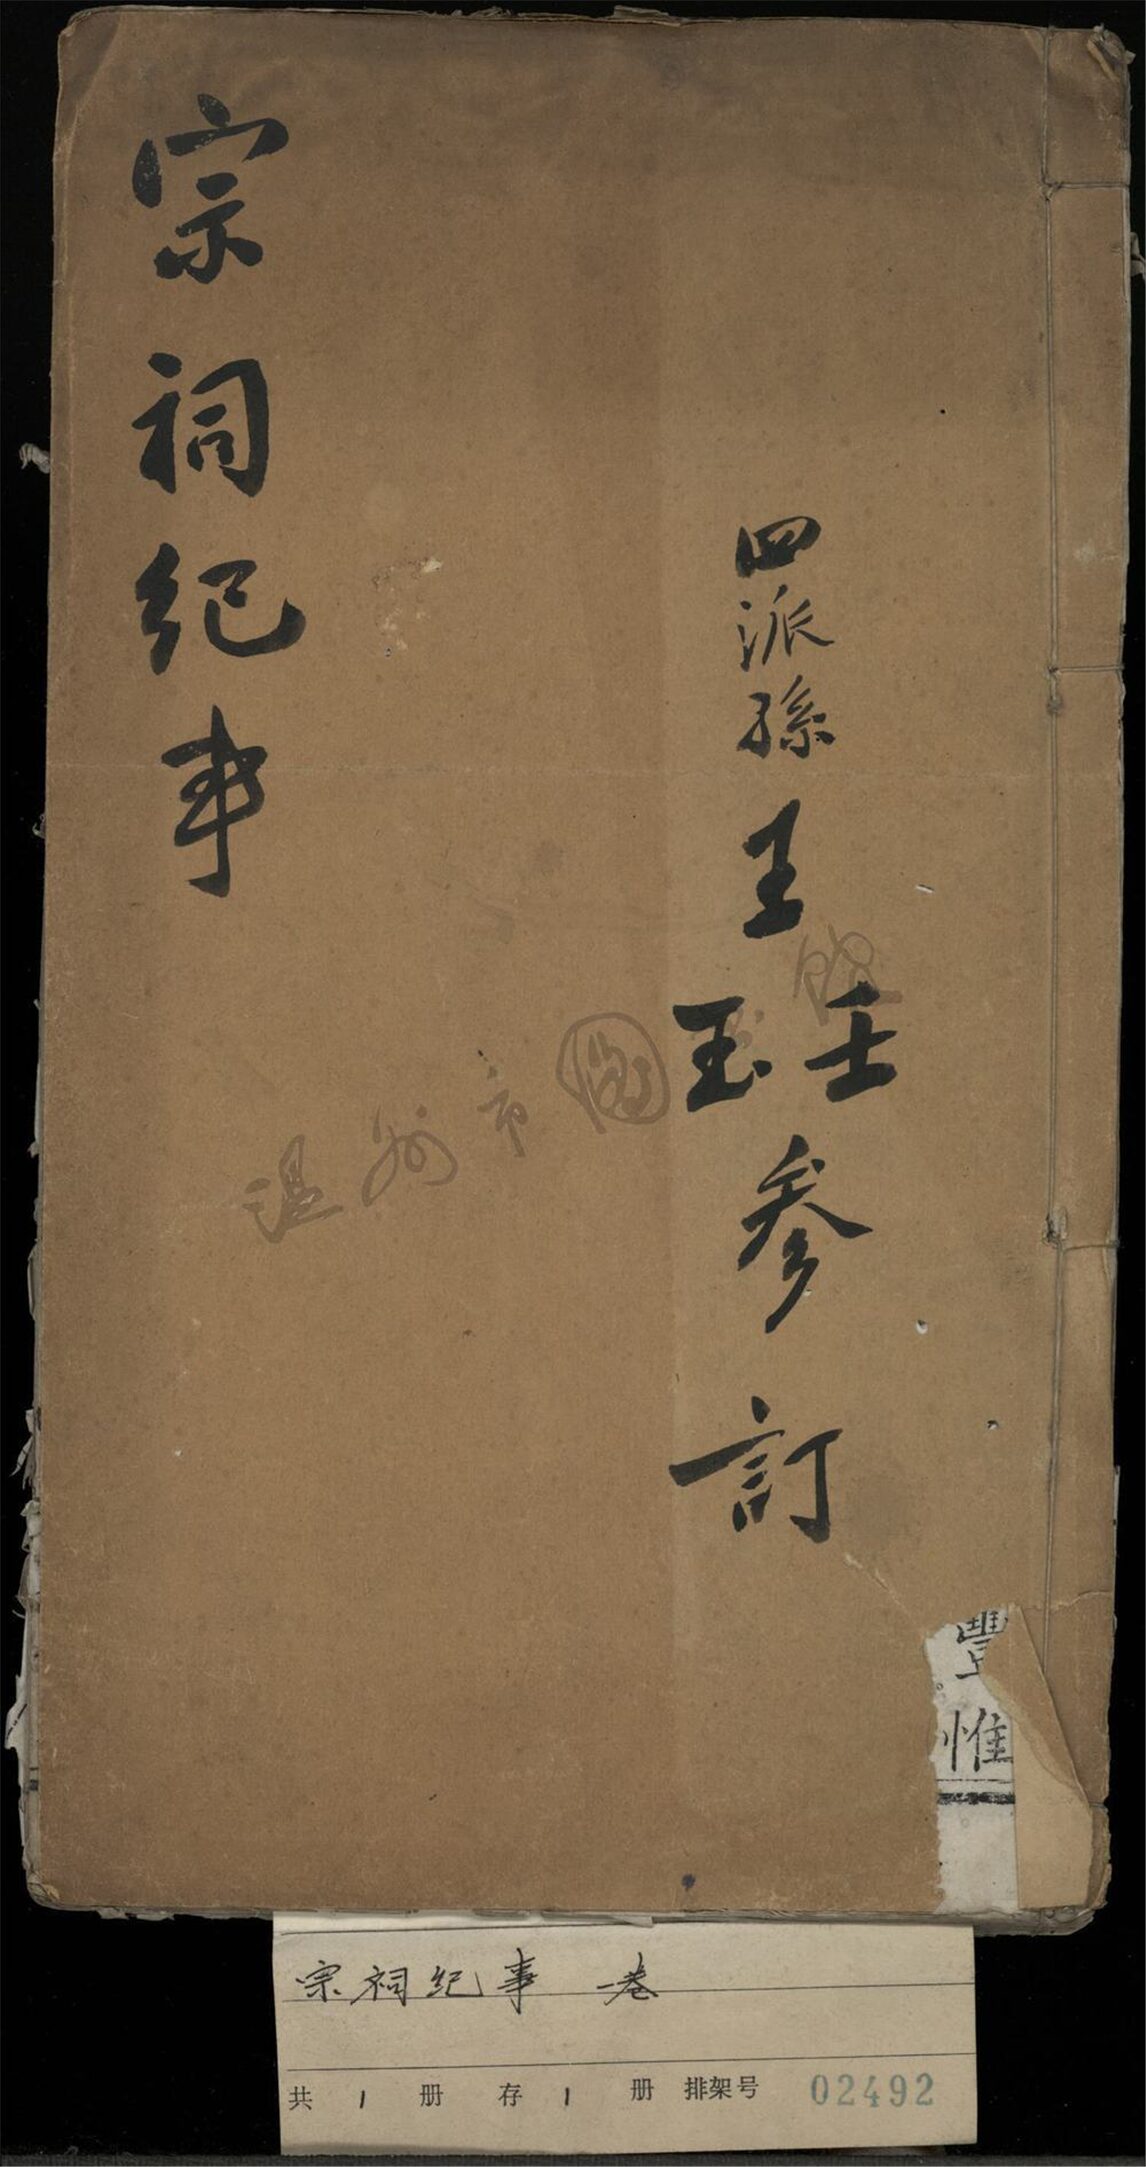 四派孫王壬玉参訂
宗祠紀事
豐
惟
温州市圖書館
宗祠紀事 一卷
共 1 册 存 1 册 排架号 02492